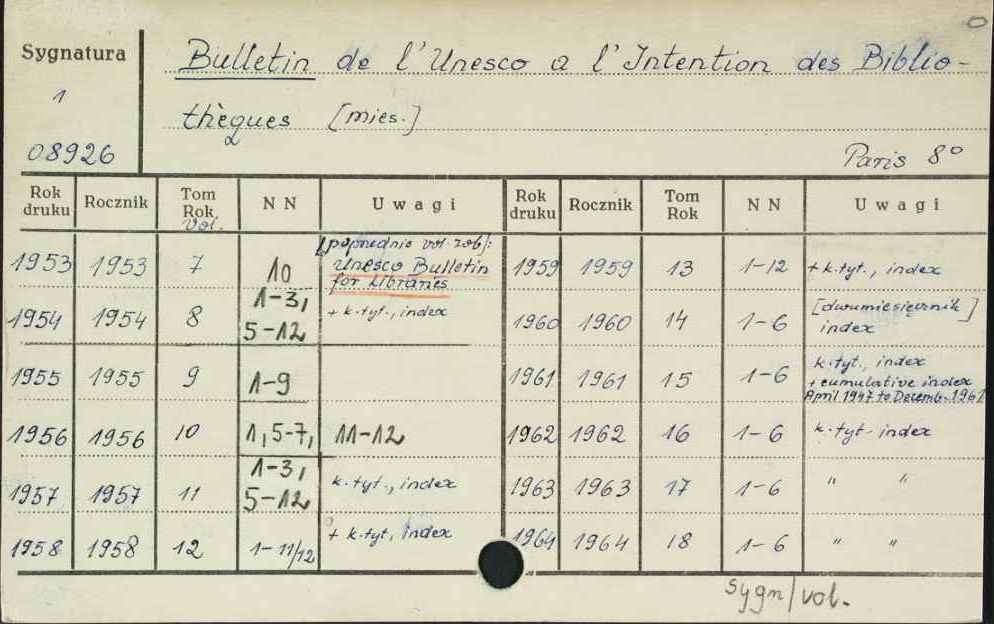 Sygnatura
1
08926
Bulletin de l'Unesco a l'Intention des Biblio-
thèques [mies.]
Paris 8°
Rok druku Rocznik Tom Rok Vol. N N Uwagi Rok druku Rocznik Tom Rok N N Uwagi
1953 1953 7 10 [poprzednio vol. zob.: Unesco Bulletin for Libraries 1959 1959 13 1-12 + k.tyt., index
1954 1954 8 1-3, 5-12 + k.tyt., index 1960 1960 14 1-6 [dwumiesięcznik] index
1955 1955 9 1-9 1961 1961 15 1-6 k.tyt., index + cumulative index April 1947 to Decemb. 1961
1956 1956 10 1, 5-7, 11-12 1962 1962 16 1-6 k.tyt. index
1957 1957 11 1-3, 5-12 k.tyt., index 1963 1963 17 1-6 " "
1958 1958 12 1-11/12 + k.tyt., index 1964 1964 18 1-6 " "
sygn/vol.